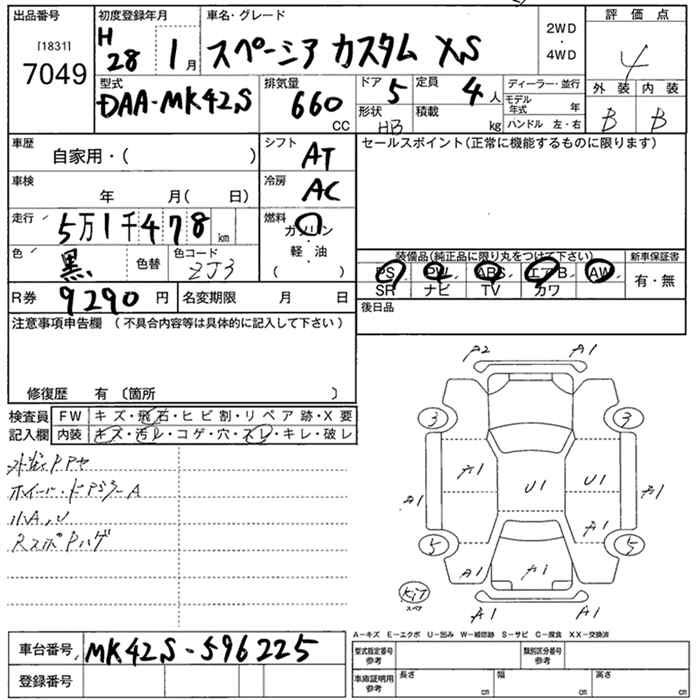 出品番号 初度登録年月 車名・グレード 2WD・4WD 評価点
[1831] 7049 H28 1月 スペーシア カスタム XS 4
型式 排気量 ドア 定員 ディーラー・並行 外装 内装
DAA-MK42S 660CC 5 4人 モデル年式 年 B B
形状 HB 積載 kg ハンドル 左・右
車歴 自家用・( ) シフト AT セールスポイント(正常に機能するものに限ります)
車検 年 月( 日) 冷房 AC
走行 5万1千478km 燃料 ガソリン・軽油( )
色 黒 色替 色コード ZJ3
装備品(純正品に限り丸をつけて下さい) 新車保証書
PS PW ABS エアB AW 有・無
SR ナビ TV カワ
R券 9290円 名変期限 月 日 後日品
注意事項申告欄(不具合内容等は具体的に記入して下さい)
修復歴 有 〔箇所 〕
検査員記入欄 FW キズ・飛石・ヒビ割・リペア跡・X要
内装 キズ・汚レ・コゲ・穴・スレ・キレ・破レ
ホイール・ドアミラーA
小A,U
A2 A1
3 3
A1 U1 U1
A1 A1
A1
5 5
A1 A1 A1
KiT
スペア
A1 A1
A-キズ E-エクボ U-凹み W-補修跡 S-サビ C-腐食 XX-交換済
車台番号 MK42S-596225
型式指定番号 参考 類別区分番号 参考
登録番号
車庫証明用 参考 長さ cm 幅 cm 高さ cm